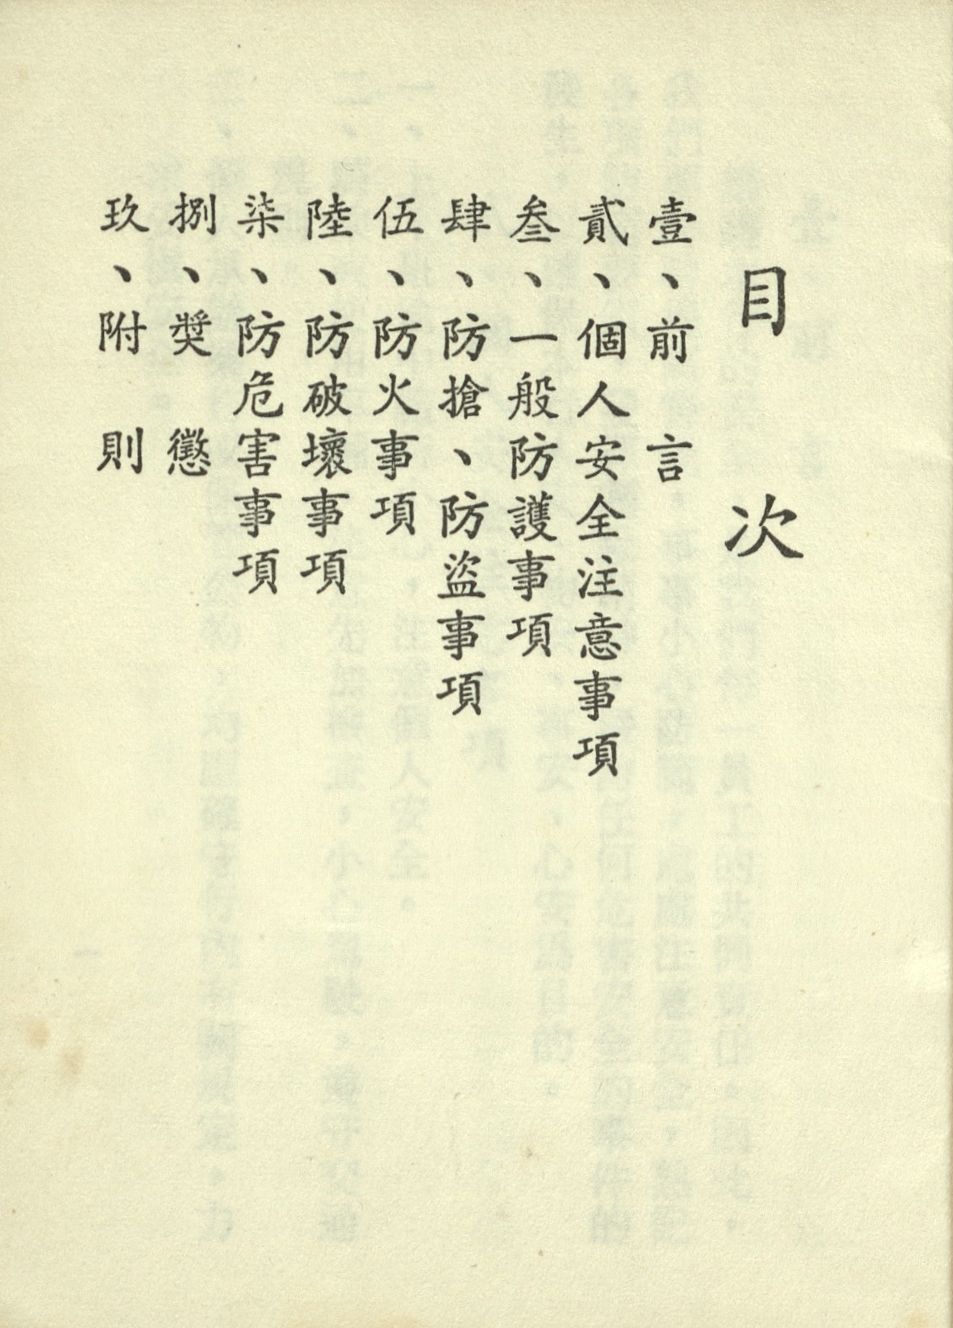 目次
壹、前言
貳、個人安全注意事項
叁、一般防護事項
肆、防搶、防盜事項
伍、防火事項
陸、防破壞事項
柒、防危害事項
捌、獎懲
玖、附則